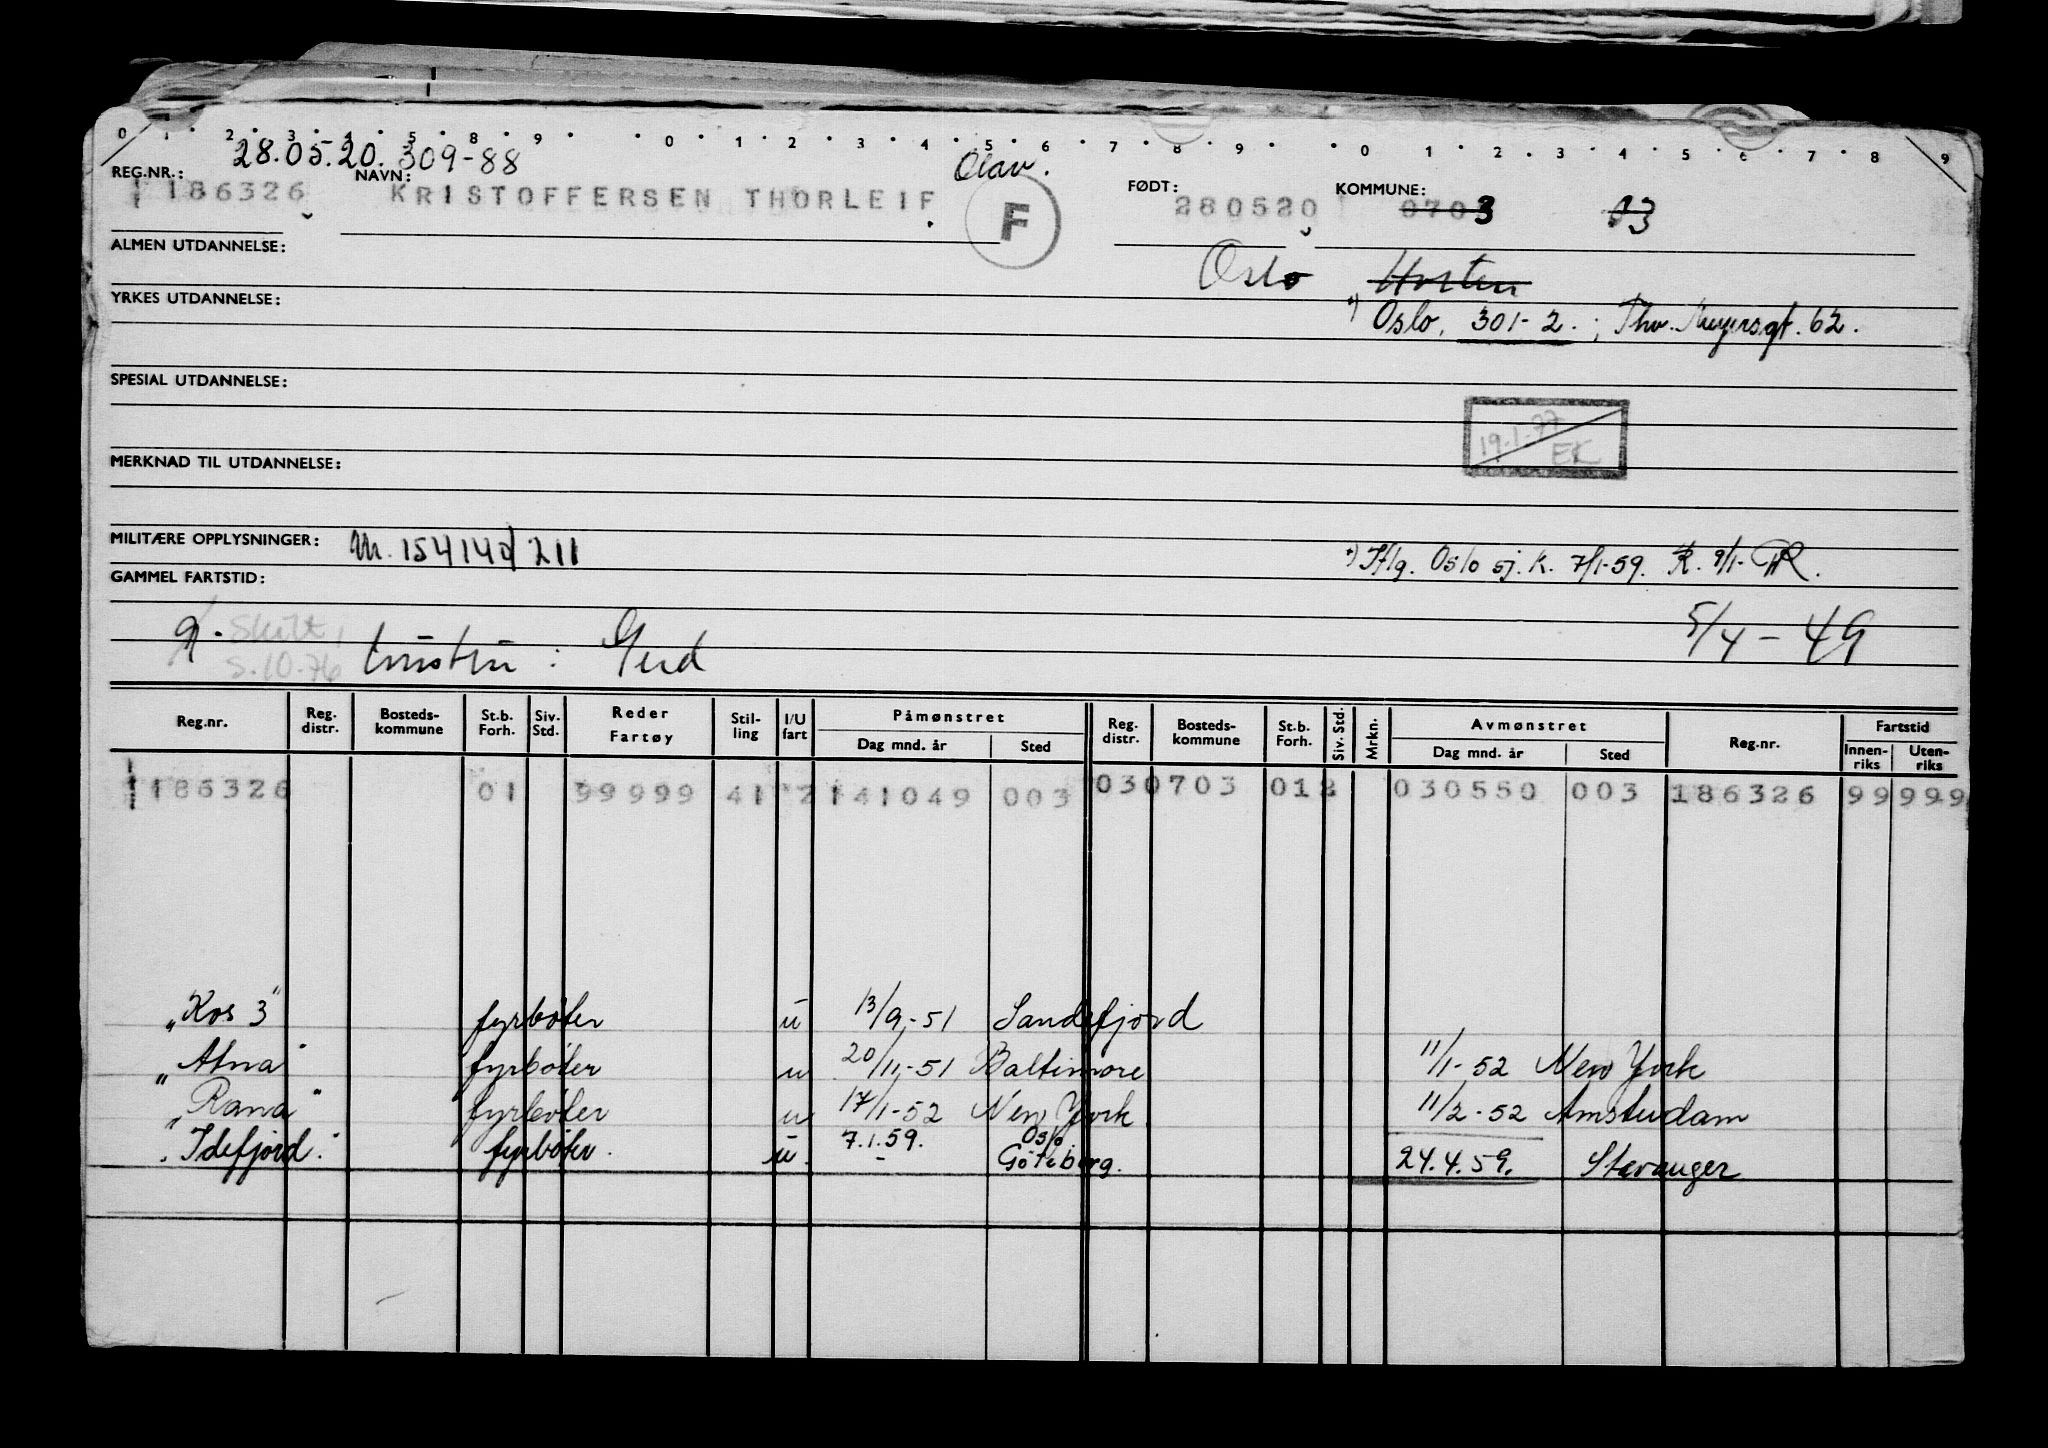 0 1 2 3 4 5 8 9 0 1 2 3 4 5 6 7 8 9 0 1 2 3 4 5 6 7 8 9
28.05.20. 309-88 Olav.
REG.NR.: NAVN: FØDT: KOMMUNE:
186326 KRISTOFFERSEN THORLEIF F 280520 0703 03
ALMEN UTDANNELSE: Oslo Horten
YRKES UTDANNELSE:
*) Oslo, 301-2. ; Thv. Meyersgt. 62.
SPESIAL UTDANNELSE:
19.1.77 EK
MERKNAD TIL UTDANNELSE:
MILITÆRE OPPLYSNINGER: M. 154140/211
*) Iflg. Oslo sj.k. 7/1-59. R. 9/1-
GAMMEL FARTSTID:
g. Skilt, 5/4-49
5.10.76 hustru: Gerd
Reg.nr. Reg. distr. Bosteds-kommune St.b. Forh. Siv. Std. Reder Fartøy Stil-ling I/U fart Påmønstret Dag mnd. år Sted Reg. distr. Bosteds-kommune St.b. Forh. Siv. Std. Mrkn. Avmønstret Dag mnd. år Sted Reg.nr. Fartstid Innen-riks Uten-riks
186326 01 99999 41 2 141049 003 030703 012 030550 003 186326 99 999
"Kos 3" fyrbøter u 13/9-51 Sandefjord
"Atna" fyrbøter u 20/11-51 Baltimore 11/1-52 New York
"Rana" fyrbøter u 17/1-52 New York 11/2-52 Amsterdam
"Idefjord" fyrbøter. u. 7.1.59. Oslo
- Göteborg. 24.4.59. Stavanger